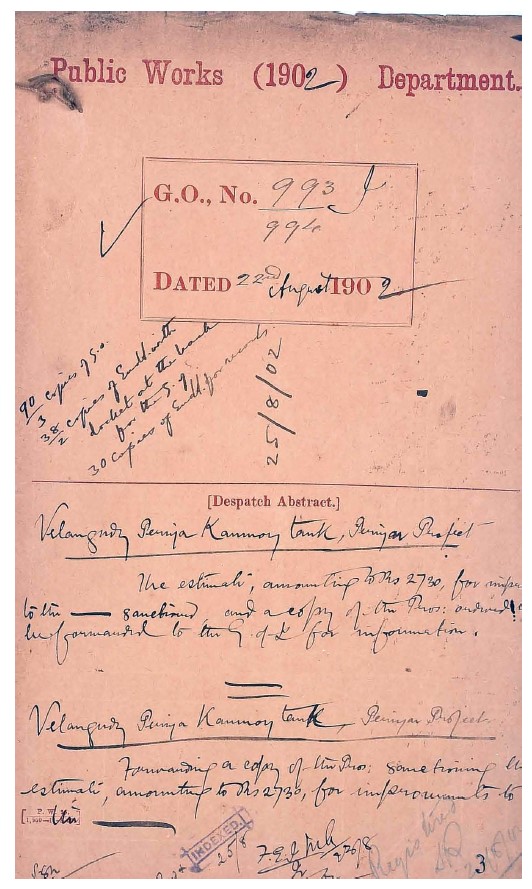 Public Works (1902) Department.
G.O., No. 993 I
994
DATED 22nd August 1902
90 copies of G.O.
3
38 copies of Endt. with
2
docket at the back
for the G. of I.
30 copies of Endt. for records
25/8/02
[Despatch Abstract.]
Velangudy Periya Kanmoy tank, Periyar Project
The estimate, amounting to Rs 2730, for
to the — sanctioned and a copy of the Pros: ordered
be forwarded to the G. of I. for information.
Velangudy Periya Kanmoy tank, Periyar Project
Forwarding a copy of the Pros: sanctioning the
estimate, amounting to Rs 2730, for improvements to
the —
INDEXED
25/8
22/8
Registered
3